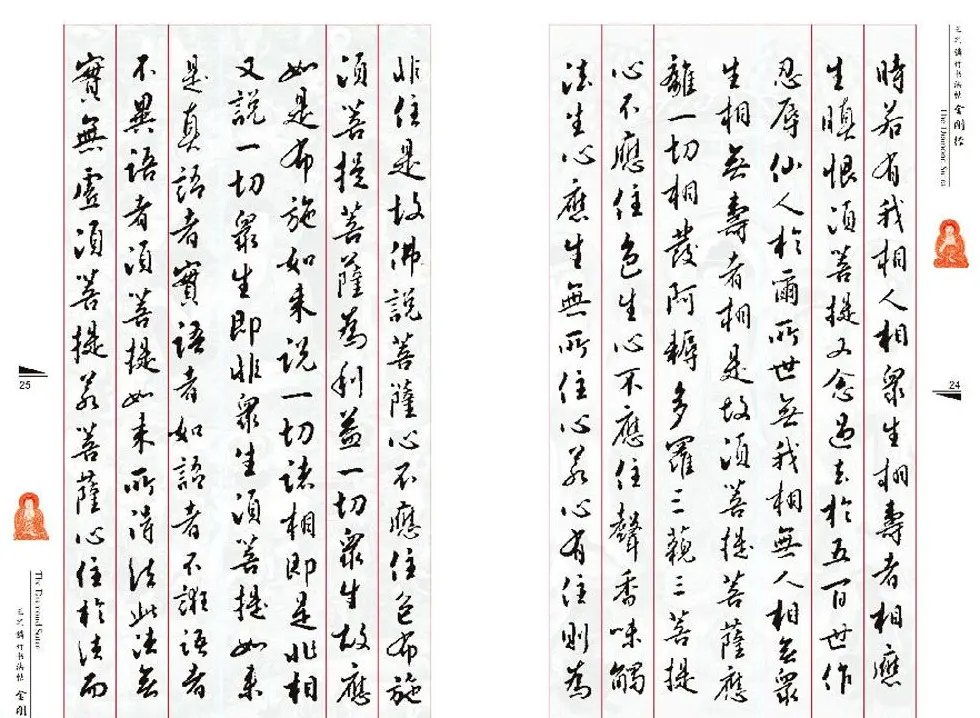 金剛經
The Diamond Sutra
24
時若有我相人相眾生相壽者相應
生瞋恨須菩提又念過去於五百世作
忍辱仙人於爾所世無我相無人相無眾
生相無壽者相是故須菩提菩薩應
離一切相發阿耨多羅三藐三菩提
心不應住色生心不應住聲香味觸
法生心應生無所住心若心有住則為
非住是故佛說菩薩心不應住色布施
須菩提菩薩為利益一切眾生故應
如是布施如來說一切諸相即是非相
又說一切眾生即非眾生須菩提如來
是真語者實語者如語者不誑語者
不異語者須菩提如來所得法此法無
實無虛須菩提若菩薩心住於法而
25
The Diamond Sutra
金剛